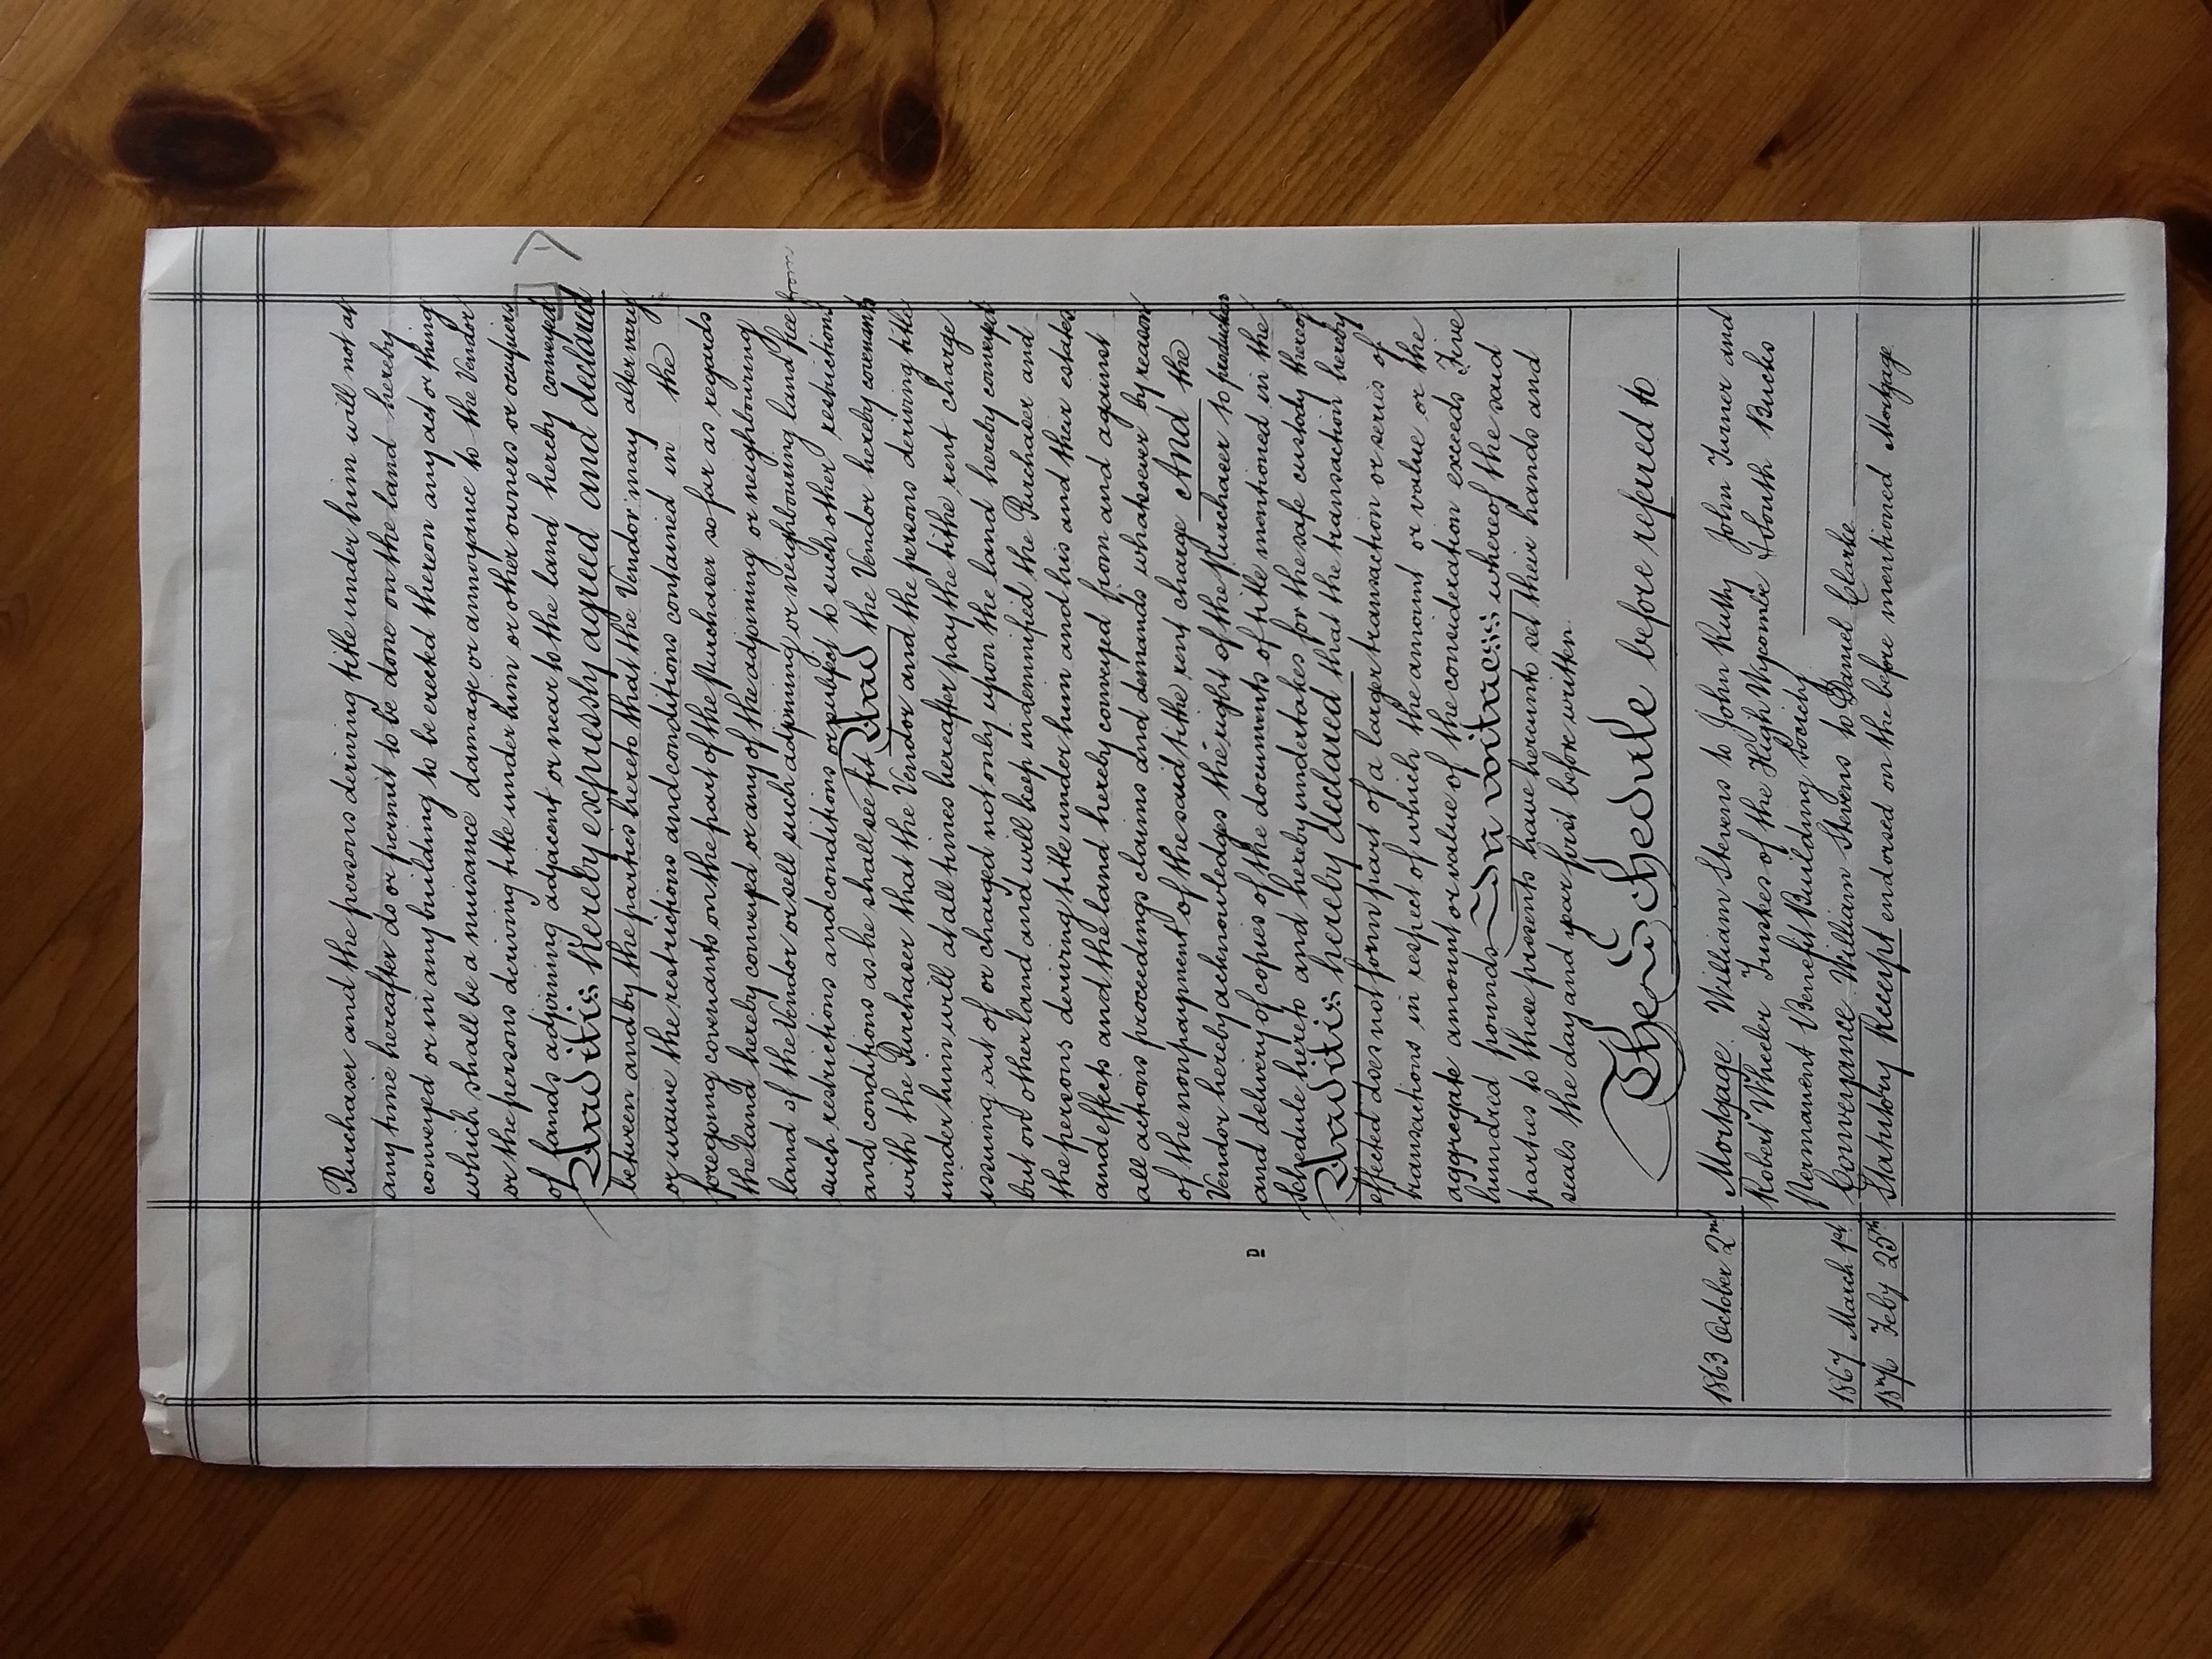 Purchaser and the persons deriving title under him will not at
any time hereafter do or permit to be done on the land hereby
conveyed or in any building to be erected thereon any act or thing
which shall be a nuisance damage or annoyance to the Vendor
or the persons deriving title under him or other owners or occupiers
of lands adjoining adjacent or near to the land hereby conveyed
And it is hereby expressly agreed and declared
between and by the parties hereto that the Vendor may alter vary
or waive the restrictions and conditions contained in the
foregoing covenants on the part of the Purchaser so far as regards
the land hereby conveyed or any of the adjoining or neighbouring
land of the Vendor or sell such adjoining or neighbouring land free from
such restrictions and conditions or subject to such other restrictions
and conditions as he shall see fit And the Vendor hereby covenants
with the Purchaser that the Vendor and the persons deriving title
under him will at all times hereafter pay the tithe rent charge
issuing out of or charged not only upon the land hereby conveyed
but on other land and will keep indemnified the Purchaser and
the persons deriving title under him and his and their estates
and effects and the land hereby conveyed from and against
all actions proceedings claims and demands whatsoever by reason
of the nonpayment of the said tithe rent charge And the
Vendor hereby acknowledges the right of the Purchaser to production
and delivery of copies of the documents of title mentioned in the
Schedule hereto and hereby undertakes for the safe custody thereof
And it is hereby declared that the transaction hereby
effected does not form part of a larger transaction or series of
transactions in respect of which the amount or value or the
aggregate amount or value of the consideration exceeds Five
hundred pounds In witness whereof the said
parties to these presents have hereunto set their hands and
seals the day and year first before written
The Schedule before referred to
1863 October 2nd Mortgage. William Stevens to John Rutty John Turner and
Robert Wheeler Trustees of the High Wycombe & South Bucks
Permanent Benefit Building Society
1867 March 1st Conveyance William Stevens to Daniel Clarke
1876 Feby 25th Statutory Receipt endorsed on the before mentioned Mortgage
D